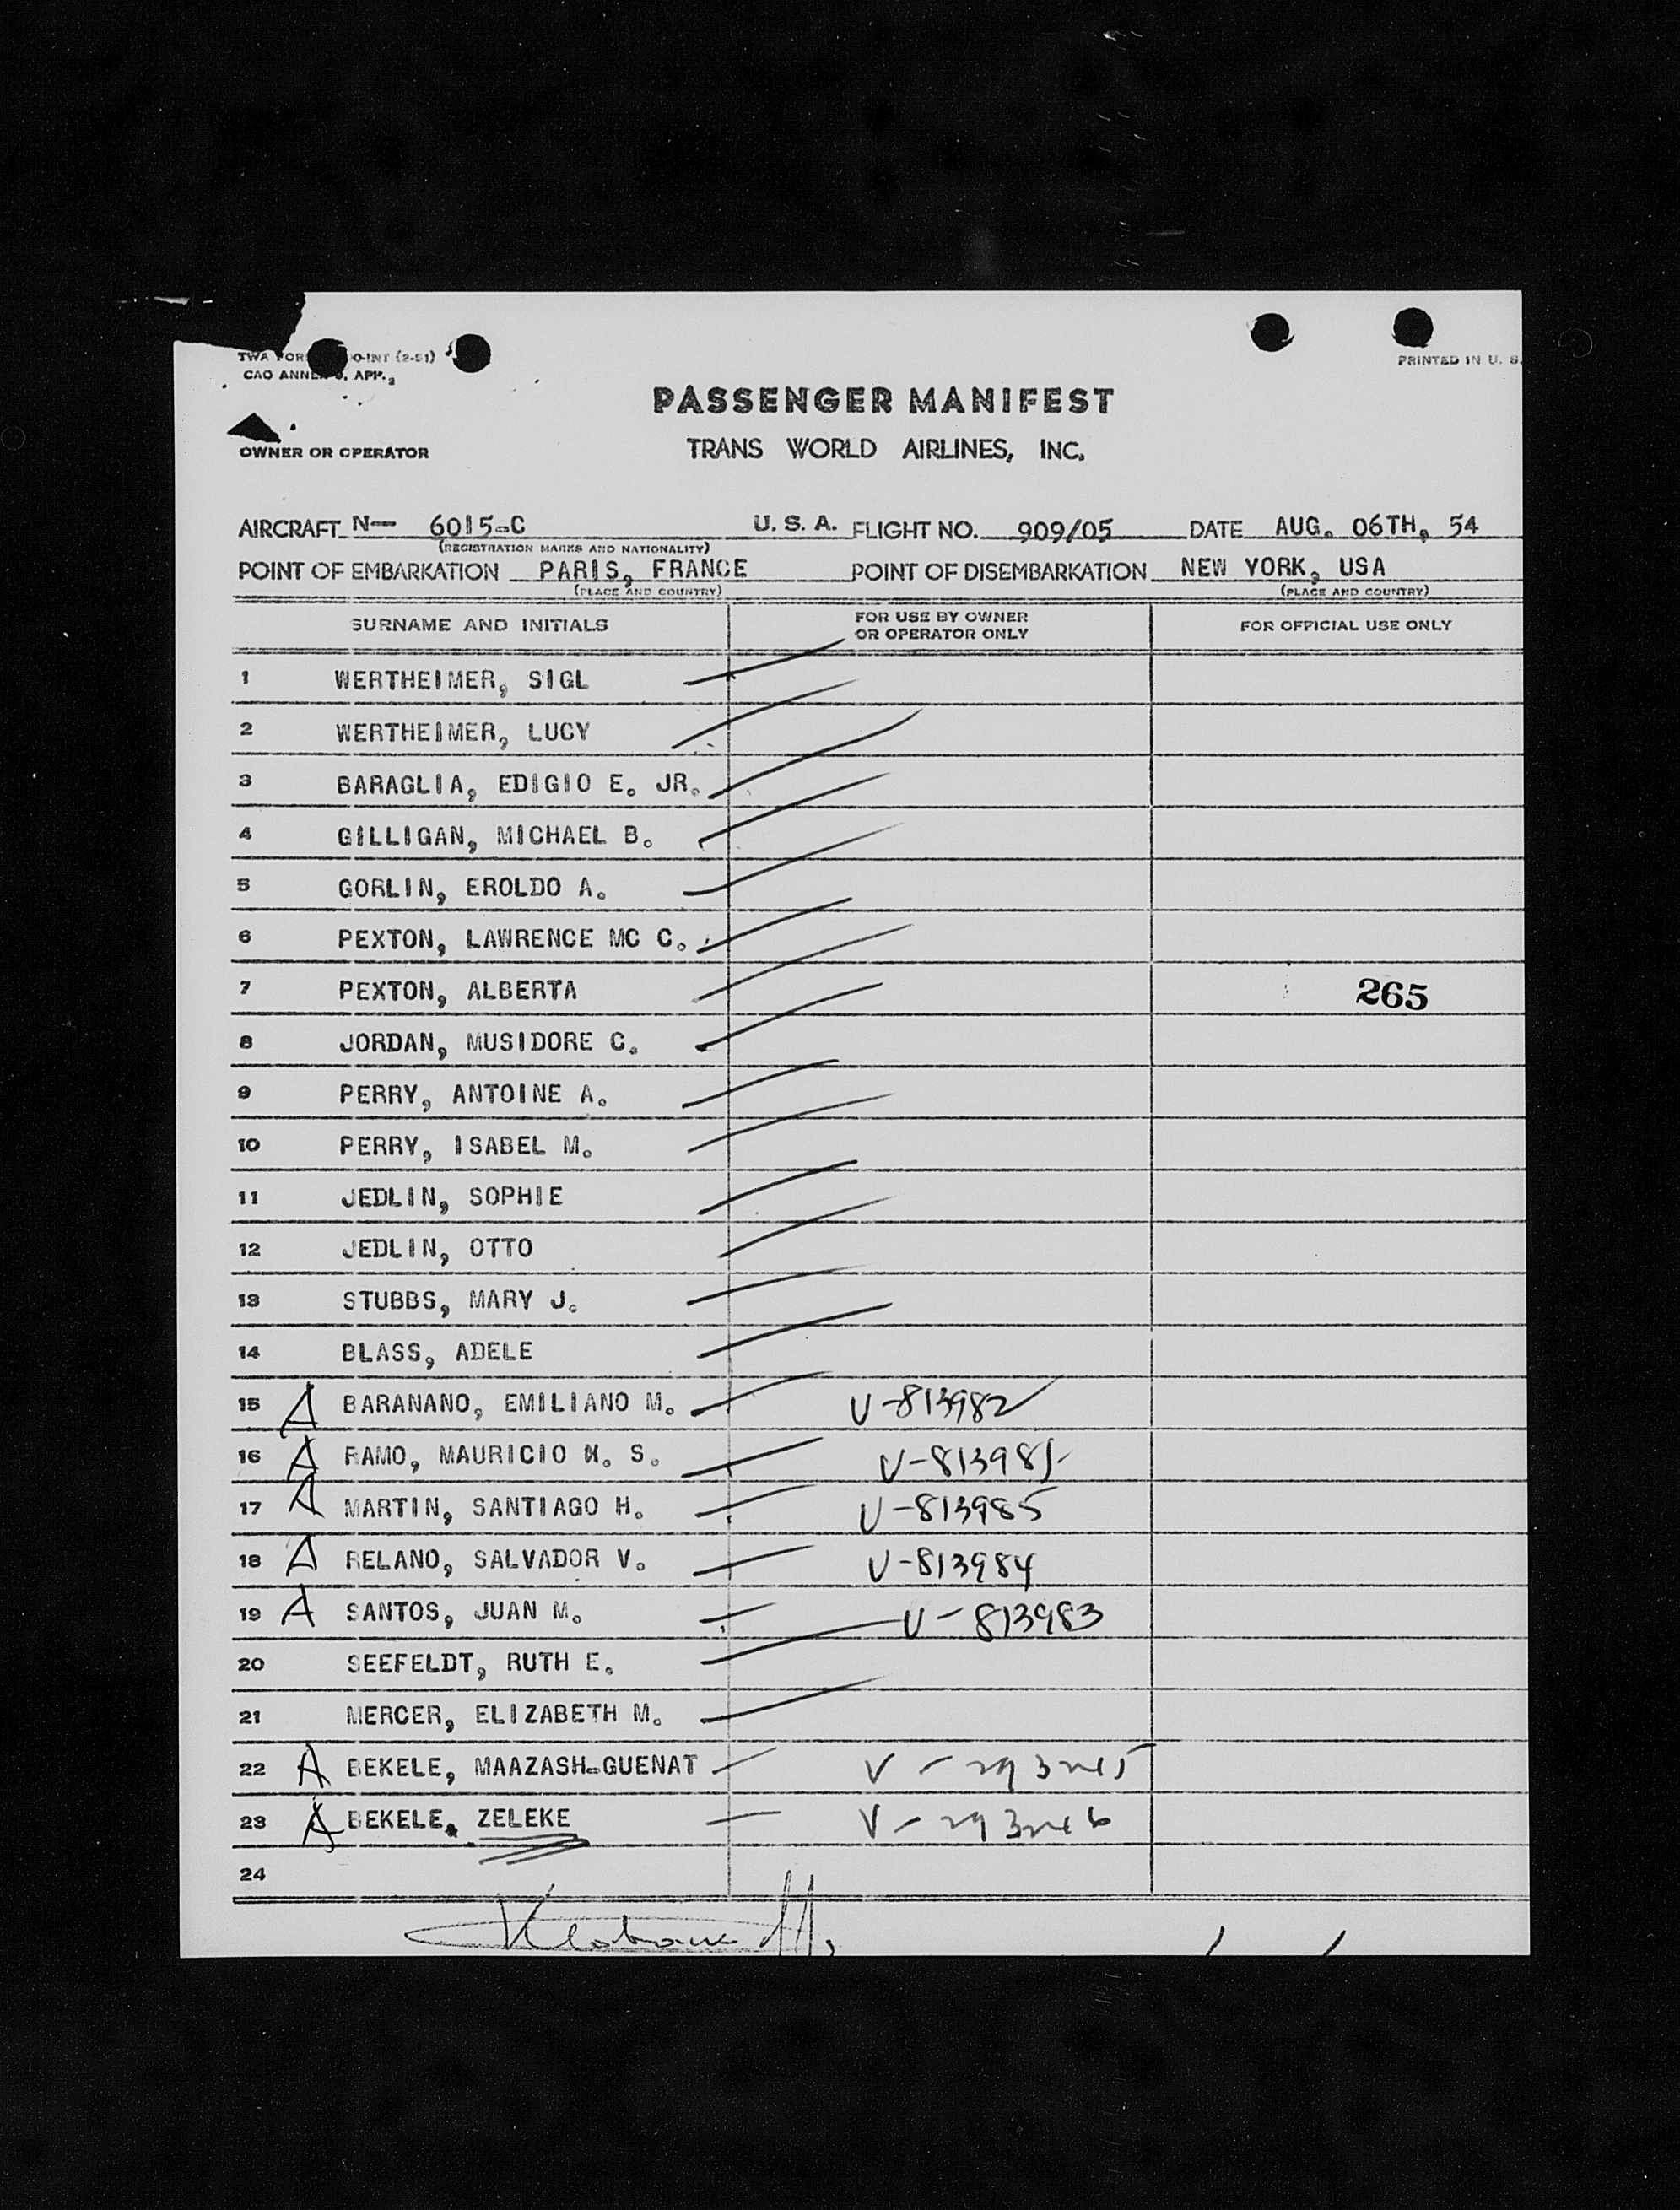 TWA FOR O-INT (2-51)
CAO ANNEX 9, APP. 2
PRINTED IN U. S.
PASSENGER MANIFEST
OWNER OR OPERATOR
TRANS WORLD AIRLINES, INC.
AIRCRAFT N— 6015-C U. S. A. FLIGHT NO. 909/05 DATE AUG. 06TH, 54
(REGISTRATION MARKS AND NATIONALITY)
POINT OF EMBARKATION PARIS, FRANCE POINT OF DISEMBARKATION NEW YORK, USA
(PLACE AND COUNTRY) (PLACE AND COUNTRY)
SURNAME AND INITIALS FOR USE BY OWNER OR OPERATOR ONLY FOR OFFICIAL USE ONLY
1 WERTHEIMER, SIGL
2 WERTHEIMER, LUCY
3 BARAGLIA, EDIGIO E. JR.
4 GILLIGAN, MICHAEL B.
5 GORLIN, EROLDO A.
6 PEXTON, LAWRENCE MC C.
7 PEXTON, ALBERTA 265
8 JORDAN, MUSIDORE C.
9 PERRY, ANTOINE A.
10 PERRY, ISABEL M.
11 JEDLIN, SOPHIE
12 JEDLIN, OTTO
13 STUBBS, MARY J.
14 BLASS, ADELE
15 A BARANANO, EMILIANO M. V-813982
16 A RAMO, MAURICIO M. S. V-813981
17 A MARTIN, SANTIAGO H. V-813985
18 A RELANO, SALVADOR V. V-813984
19 A SANTOS, JUAN M. V-813983
20 SEEFELDT, RUTH E.
21 MERCER, ELIZABETH M.
22 A BEKELE, MAAZASH-GUENAT V-293245
23 A BEKELE, ZELEKE V-293246
24